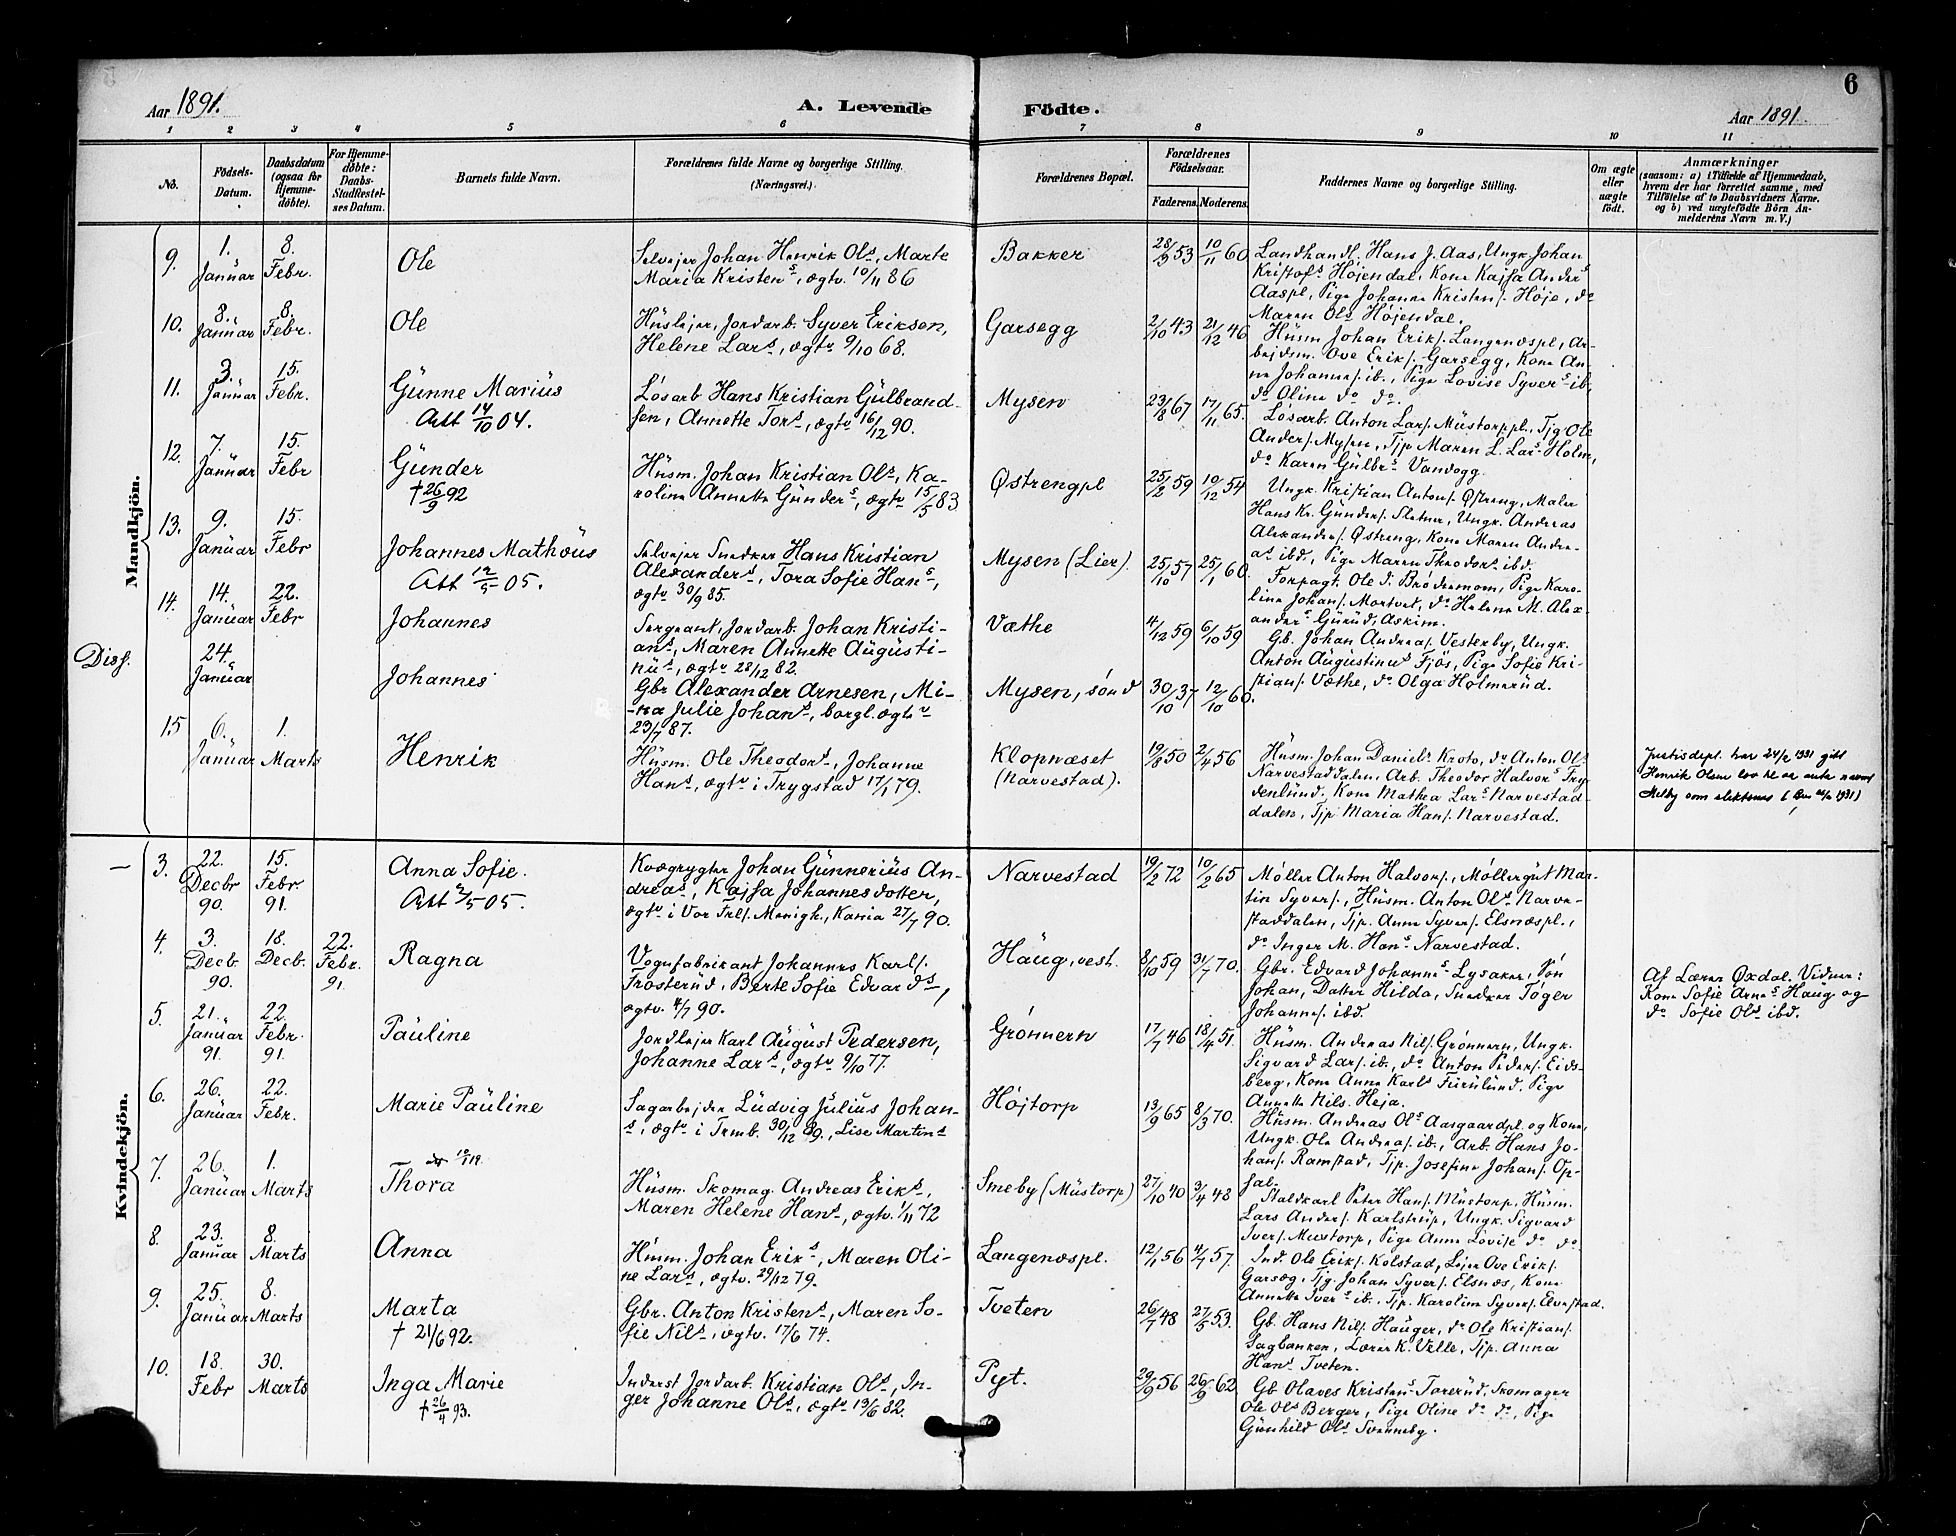 6
Aar 1891.
A. Levende Fødte.
Aar 1891.
1 2 3 4 5 6 7 8 9 10 11
No.
Fødsels-Datum.
Daabsdatum (ogsaa for Hjemmedøbte).
For Hjemmedøbte: Daabs-Stadfæstelses Datum.
Barnets fulde Navn.
Forældrenes fulde Navne og borgerlige Stilling. (Næringsvei.)
Forældrenes Bopæl.
Forældrenes Fødselsaar.
Faderens. Moderens.
Faddernes Navne og borgerlige Stilling.
Om ægte eller uægte født.
Anmærkninger
(saasom: a) i Tilfælde af Hjemmedaab, hvem der har forrettet samme, med Tilføielse af to Daabsvidners Navne. og b) ved uægtefødte Börn Anmelderens Navn m. V.)
Mandkjön.
9. 1. Januar 8. Febr. Ole
Selvejer Johan Henrik Ols., Marte
Maria Kristens., ægtv. 10/11 86
Bakker 28/2 53 10/11 60
Landhandl. Hans J. Aas, Ungk. Johan
Kristofs. Højendal, Kone Kajsa Anders.
Aaspl., Pige Johanne Kristens. Høje, do
Maren Ols. Højendal.
10. 8. Januar 8. Febr. Ole
Huslejer, Jordarb. Syver Eriksen,
Helene Lars., ægtv. 9/10 68.
Garsegg 2/10 43 21/12 46
Husm. Johan Eriks. Langenæspl., Ar-
bejdsm. Ove Eriks. Garsegg, Kone An-
ne Johannes. ib., Pige Lovise Syvers. ib.,
do Oline do do.
11. 3. Januar 15. Febr. Gunne Marius
Att 14/10 04.
Løsarb. Hans Kristian Gulbrand-
sen, Annette Tors., ægtv. 16/12 90.
Mysen 23/8 67 17/11 65.
Løsarb. Anton Lars. Mustorppl., Tjg. Ole
Anders. Mysen, Tjp. Maren L. Lars. Holm,
do Karen Gulbrs. Vandogg.
12. 7. Januar 15. Febr Gunder
† 26/9 92
Husm. Johan Kristian Ols., Ka-
roline Annette Gunders., ægtv. 15/5 83
Østrengpl 25/2 59 10/12 54
Ungk. Kristian Antons. Østreng, Maler
Hans Kr. Gunders. Sletner, Ungk. Andreas
Alexanders. Østreng, Kone Maren Andre-
as. ibd., Pige Maren Theodors. ibd.
13. 9. Januar 15. Febr Johannes Mathæus
Att 12/5 05.
Selvejer Snedker Hans Kristian
Alexanders., Tora Sofie Hans.,
ægtv. 30/9 85.
Mysen (Lier). 25/10 57 25/1 60.
Forpagt. Ole J. Brødermoen, Pige Karo-
line Johans. Mortvet, do Helene M. Alex-
anders. Gurud, Askim.
14. 14. Januar 22. Febr Johannes
Sergeant, Jordarb. Johan Kristi-
ans., Maren Annette Augusti-
nus., ægtv. 28/12 82.
Væthe 4/12 59 6/10 59
Gb. Johan Andreas. Vesterby, Ungk.
Anton Augustinus. Fjøs, Pige Sofie Kri-
stians. Væthe, do Olga Holmerud.
Diss. 24. Januar Johannes
Gbr. Alexander Arnesen, Mi-
na Julie Johans., borgl. ægtv.
23/7 87.
Mysen, sønd 30/10 37 12/10 60.
15 6. Januar 1. Marts Henrik
Husm. Ole Theodors., Johanne
Hans., ægtv. i Trygstad 17/1 79.
Klopnæset
(Narvestad). 19/8 50 2/4 56
Husm. Johan Daniels. Kroto, do Anton Ols.
Narvestaddalen, Arb. Theodor Halvors. Fry-
denlund, Kone Mathea Lars. Narvestad-
dalen, Tjp. Maria Hans. Narvestad.
Justisdept. har 24/2 1931 gitt
Henrik Olsen lov til at anta navnet
Melby som slektsnavn
Kvindekjön.
3. 22. Decbr 90. 15. Febr. 91. Anna Sofie.
Att 2/5 05.
Kvægrygter Johan Gunnerius An-
dreas., Kajsa Johannesdotter,
ægtv. i Vor Frels. Menigh., Kania 27/7 90.
Narvestad 19/2 72 10/2 65
Møller Anton Halvors., Møllergut Mar-
tin Syvers., Husm. Anton Ols. Narve-
staddalen, Tjp. Anne Syvers. Elsnæspl.,
do Inger M. Hans. Narvestad.
4. 3. Decb. 90. 18. Decb. 22. Febr. 91. Ragna
Vognfabrikant Johannes Karls.
Trosterud, Berte Sofie Edvards.,
ægtv. 4/7 90.
Haug, vest. 8/10 59 31/7 70.
Gbr. Edvard Johannes. Lysaker, Søn
Johan, Datter Hilda, Snedker Tøger
Johannes. ibd.
Af Lærer Oxdal. Vidner:
Kone Sofie Arnes. Haug og
do Sofie Ols. ibd.
5. 21. Januar 91. 22. Febr. 91. Pauline
Jordlejer Karl August Pedersen,
Johanne Lars., ægtv. 9/10 77.
Grønnern 17/7 46 18/4 51.
Husm. Andreas Nils. Grønnern, Ungk.
Sigvard Lars. ib., do Anton Peders. Eids-
berg, Kone Anne Karls. Furulund, Pige
Annette Nils. Heja.
6. 26. Januar 22. Febr. Marie Pauline
Sagarbejder Ludvig Julius Johan-
s., ægtv. i Trmb. 30/12 89., Lise Martins.
Højtorp 13/9 65 8/3 70.
Husm. Andreas Ols. Aasgaardpl. og Kone,
Ungk. Ole Andreas. ib., Arb. Hans Jo-
hans. Ramstad, Tjp. Josefine Johans. Op-
sal.
7. 26. Januar 1. Marts Thora
Husm. Skomag. Andreas Eriks.,
Maren Helene Hans., ægtv. 1/11 72
Smeby (Mustorp) 27/10 40 3/4 48
Staldkarl Peter Hans. Mustorp, Husm.
Lars Anders. Karlstrup, Ungk. Sigvard
Ivers. Mustorp, Pige Anne Lovise do do.
8. 23. Januar 8. Marts Anna
Husm. Johan Eriks., Maren Oli-
ne Lars., ægtv. 29/12 79.
Langenæspl. 12/1 56 4/7 57.
Ind. Ole Eriks. Kolstad, Lejer Ove Eriks.
Garsæg, Tjg. Johan Syvers. Elsnæs, Kone
Annette Ivers. ib., Tjp. Karoline Syvers. Elvestad.
9. 25. Januar 8. Marts Marta
† 21/6 92.
Gbr. Anton Kristens., Maren So-
fie Nils., ægtv. 17/6 74.
Tveten 26/7 48 27/5 53.
Gb. Hans Nils. Hauger, do Ole Kristians.
Sagbakken, Lærer K. Velle, Tjp. Anna
Hans. Tveten.
10. 18. Febr 30. Marts Inga Marie
† 26/4 93.
Inderst Jordarb. Kristian Ols., In-
ger Johanne Ols., ægtv. 13/6 82.
Pyt. 29/9 56 26/9 62
Gb. Olaves Kristens. Torerud, Skomager
Ole Ols. Berger, Pige Oline do do., Pige
Gunhild Ols. Svenneby.